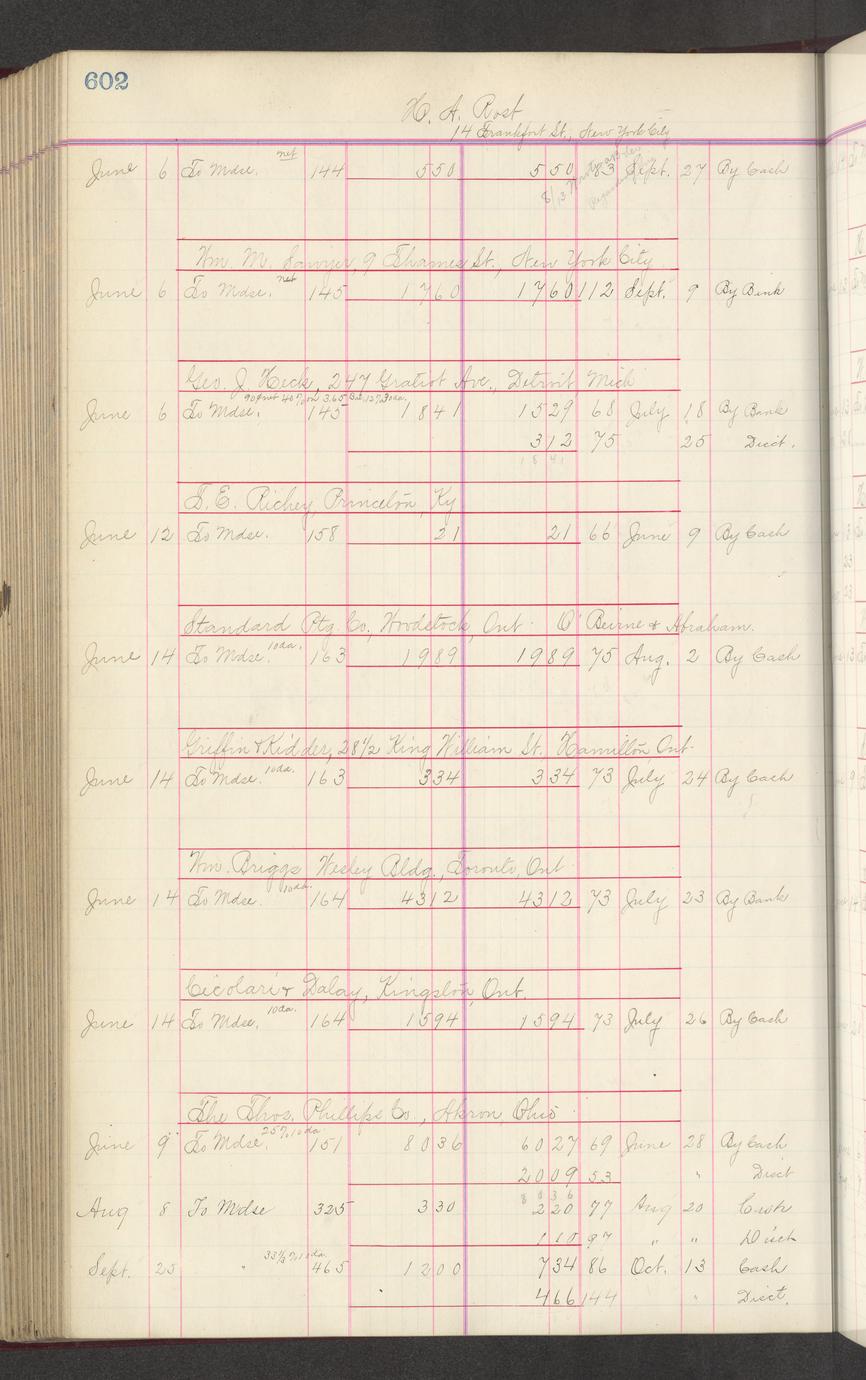 602
H. A. Rost
14 Frankfort St., New York City
net
June 6 To Mdse. 144 550 550 83 Sept. 27 By Cash
8/13
Wm. M. Sawyer, 9 Thames St., New York City
net
June 6 To Mdse. 145 1760 1760 112 Sept. 9 By Bank
Geo. J. Heck, 247 Gratiot Ave., Detroit Mich
net 40% on 3.65
June 6 To Mdse. 145 1841 1529 68 July 18 By Bank
312 75 25 Disct.
1841
T. E. Richey, Princeton, Ky
June 12 To Mdse. 158 21 21 66 June 9 By Cash
Standard Ptg. Co., Woodstock, Ont. O'Beirne & Abraham.
10 da.
June 14 To Mdse. 163 1989 1989 75 Aug. 2 By Cash
Griffin & Kidder, 28 1/2 King William St. Hamilton Ont.
10 da.
June 14 To Mdse. 163 334 334 73 July 24 By Cash
Wm. Briggs Wesley Bldg., Toronto, Ont
10 da.
June 14 To Mdse. 164 4312 4312 73 July 23 By Bank
Cicolari & Dalay, Kingston, Ont.
10 da.
June 14 To Mdse. 164 1594 1594 73 July 26 By Cash
The Thos. Phillips Co., Akron, Ohio
25% 10 da.
June 9 To Mdse. 151 8036 6027 69 June 28 By Cash
2009 53 " Disct
8036
Aug 8 To Mdse 325 330 220 77 Aug 20 Cash
110 97 " " Disct
33 1/3 % 10 da.
Sept. 25 " 465 1200 734 86 Oct. 13 Cash
466 144 " Disct.